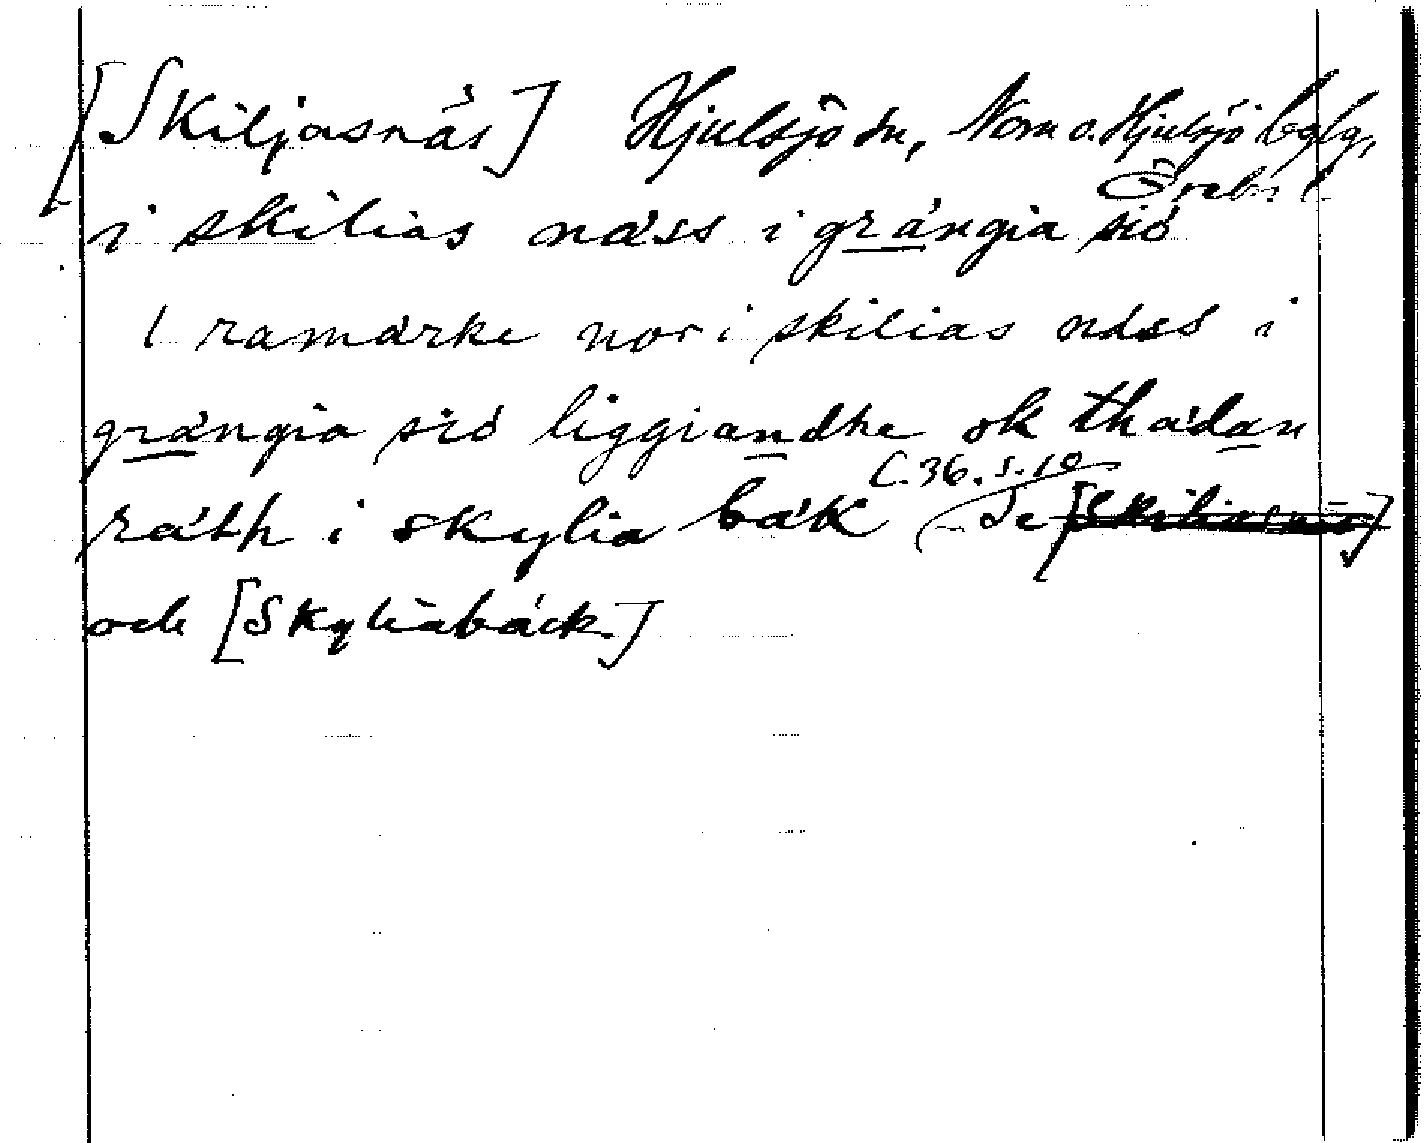 [Skiljasnäs] Hjulsjö sn, Nora o. Hjulsjö bglg,
Örebr l.
i skilias näss i grängia sió
1 ramärke nor i skilias näss i
grängia sió liggiandhe ok thädan
C. 36. s. 10
räth i skylia bäk Se [Skiliasnäs]
och [Skyliabäck]